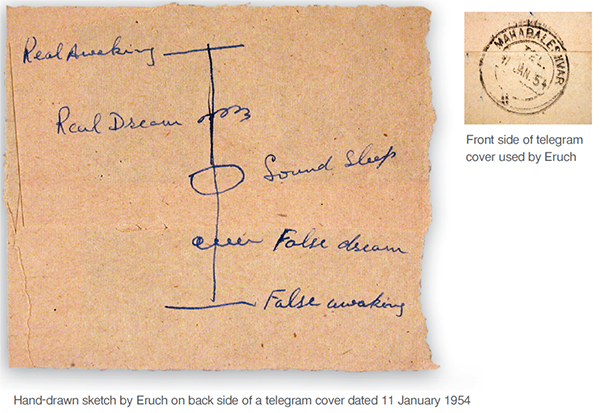 Real Awaking
Real Dream
Sound Sleep
False dream
False awaking
MAHABALESHWAR
TEL.
11 JAN. 54
Front side of telegram
cover used by Eruch
Hand-drawn sketch by Eruch on back side of a telegram cover dated 11 January 1954